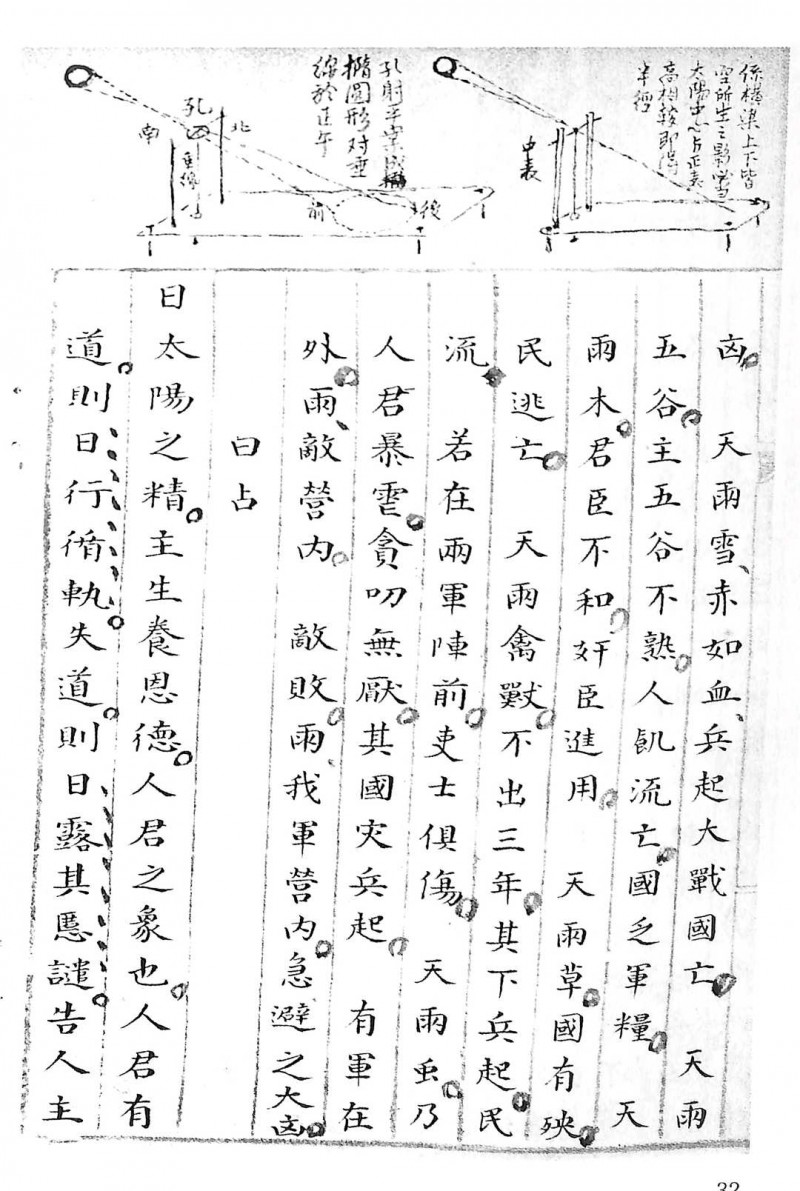 係橫梁上下皆
空所生之影當
太陽中心与正表
高相較即得
半徑
中表
孔射平案成橢
橢圓形对垂
線於正午
北
孔
垂線
南
前
後
凶。天雨雪、赤如血、兵起大戰國亡。天雨
五谷。主五谷不熟。人飢流亡。國乏軍糧。天
雨木。君臣不和。奸臣進用。天雨草。國有殃。
民逃亡。天雨禽獸。不出三年。其下兵起。民
流。若在兩軍陣前。吏士俱傷。天雨虫。乃
人君暴虐。貪叨無厭。其國灾兵起。有軍在
外。雨、敵營內。敵敗。雨我軍營內。急避之大凶。
日占
日太陽之精。主生養恩德。人君之象也。人君有
道。則日行循軌。失道。則日露其慝。譴告人主
32